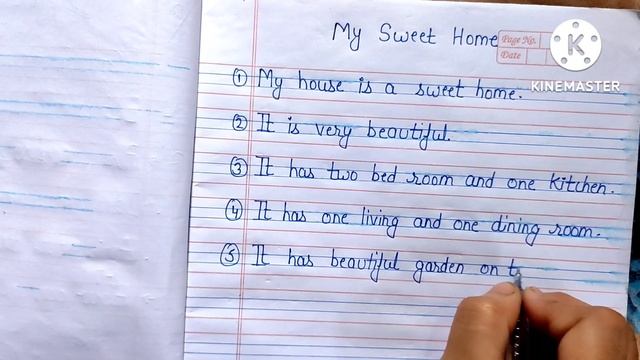 My Sweet Home
Page No.
Date
K
KINEMASTER
① My house is a sweet home.
② It is very beautiful.
③ It has two bed room and one kitchen.
④ It has one living and one dining room.
⑤ It has beautiful garden on t